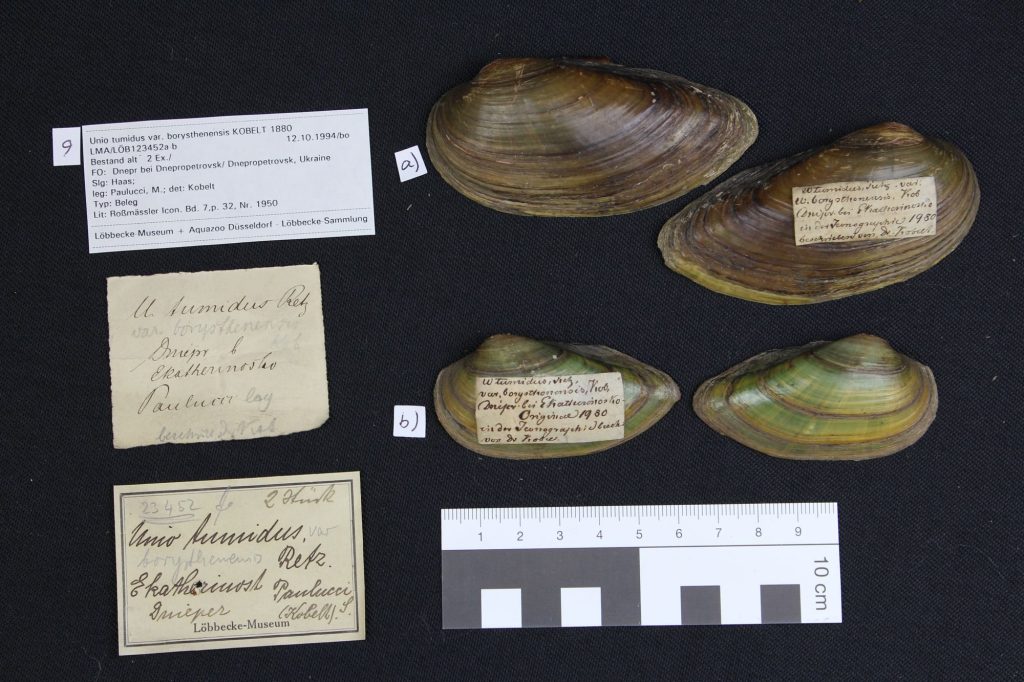 9
Unio tumidus var. borysthenensis KOBELT 1880
LMA/LÖB123452a b 12.10.1994/bo
Bestand alt 2 Ex./
FO: Dnepr bei Dnepropetrovsk/ Dnepropetrovsk, Ukraine
Slg: Haas;
leg: Paulucci, M.; det: Kobelt
Typ: Beleg
Lit: Roßmässler Icon. Bd. 7,p. 32, Nr. 1950
Löbbecke-Museum + Aquazoo Düsseldorf - Löbbecke-Sammlung
a)
U. tumidus, Retz. var.
borysthenensis, Kob
(Dniepr bei Ekatherinoslo
in der Iconographie 1980
beschrieben von Dr. Kobelt.
U. tumidus Retz
var. borysthenensis
Kob
Dniepr b
Ekatherinoslo
Paulucci leg
b)
U tumidus, Retz,
var. borysthenensis, Kob,
(Dniepr bei Ekatherinoslo.
Original 1980
in der Iconographie
von Dr Kobelt.
23452 2 Stück
Unio tumidus, var
borysthenensis Retz.
Ekatherinosl Paulucci
Dnieper (Kobelt). S.
Löbbecke-Museum
1 2 3 4 5 6 7 8 9
10 cm